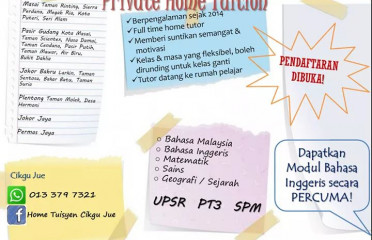 Private Home Tuition
Masai Taman Rinting, Sierra
Perdana, Megah Ria, Kota
Puteri, Seri Alam
Pasir Gudang Kota Masai,
Taman Scientex, Nusa Damai,
Taman Cendana, Pasir Putih,
Taman Mawar, Air Biru,
Bukit Dahlia
Johor Bahru Larkin, Taman
Sentosa, Bakar Batu, Taman
Suria
Plentong Taman Molek, Desa
Harmoni
Johor Jaya
Permas Jaya
✓Berpengalaman sejak 2014
✓Full time home tutor
✓Memberi suntikan semangat &
motivasi
✓Kelas & masa yang fleksibel, boleh
dirunding untuk kelas ganti
✓Tutor datang ke rumah pelajar
PENDAFTARAN
DIBUKA!
o Bahasa Malaysia
o Bahasa Inggeris
o Matematik
o Sains
o Geografi / Sejarah
UPSR PT3 SPM
Cikgu Jue
013 379 7321
f Home Tuisyen Cikgu Jue
Dapatkan
Modul Bahasa
Inggeris secara
PERCUMA!